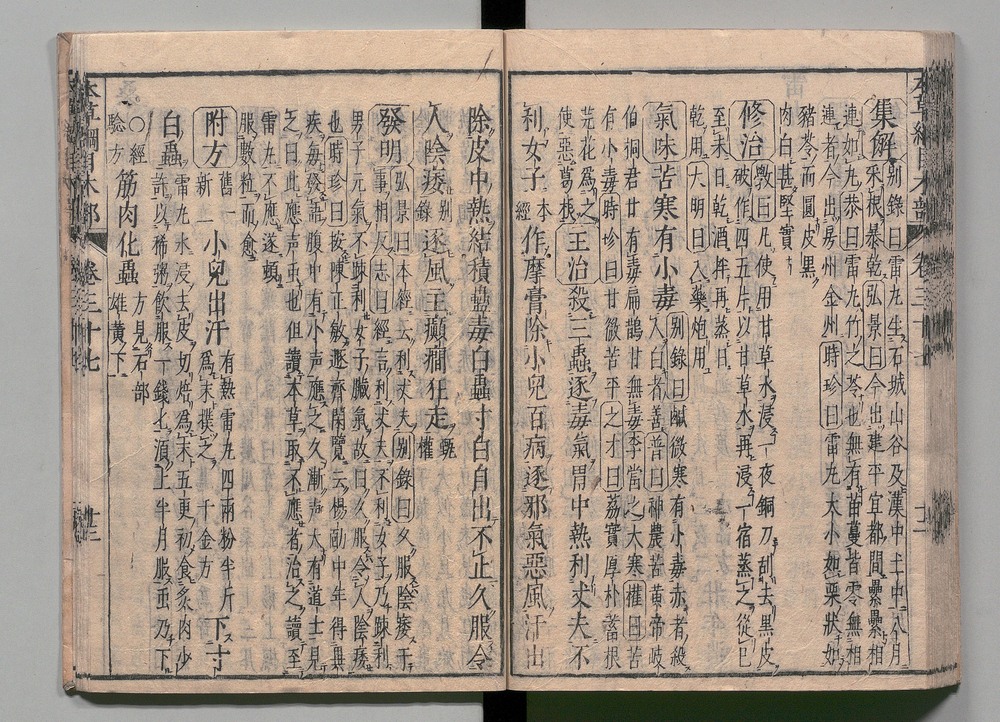 集解
別錄曰雷丸生石城山谷及漢中土中八月
采根暴乾弘景曰今出建平宜都間纍纍相
連如丸恭曰雷丸竹之苓也無有苗蔓皆零無相
連者今出房州金州時珍曰雷丸大小如栗狀如
豬苓而圓皮黑
肉白甚堅實
修治
斅曰凡使用甘草水浸一夜銅刀刮去黑皮
破作四五片以甘草水再浸一宿蒸之從巳
至未日乾酒拌再蒸日
乾用大明曰入藥炮用
氣味苦寒有小毒
別錄曰鹹微寒有小毒赤者殺
人白者善普曰神農苦黃帝岐
伯桐君甘有毒扁鵲甘無毒李當之大寒權曰苦
有小毒時珍曰甘微苦平之才曰荔實厚朴蓄根
芫花爲之
使惡葛根
主治殺三蟲逐毒氣胃中熱利丈夫不
利女子
本經
作摩膏除小兒百病逐邪氣惡風汗出
除皮中熱結積蠱毒白蟲寸白自出不止久服令
人陰痿
別錄
逐風主癲癎狂走
甄權
發明
弘景曰本經云利丈夫別錄曰久服陰痿于
事相反志曰經言利丈夫不利女子乃疎利
男子元氣不疎利女子臟氣故曰久服令人陰痿
也時珍曰按陳正敏遯齊閑覽云楊勔中年得異
疾每發語腹中有小声應之久漸声大有道士見
之曰此應声虫也但讀本草取不應者治之讀至
雷丸不應遂頓
服數粒而愈
附方
舊一
新一
小兒出汗
有熱雷丸四兩粉半斤
爲末撲之 千金方
下寸
白蟲
雷丸水浸去皮切焙爲末五更初食炙肉少
許以稀粥飲服一錢匕須上半月服虫乃下
○經
驗方
筋肉化蟲
方見石部
雄黃下
本草綱目木部 卷三十七 廿三